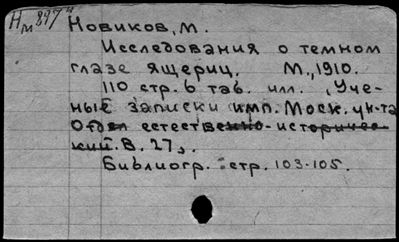 Нм 897
Новиков, М.
Исследования о темном
глазе ящериц. М., 1910.
110 стр. 6 таб. илл. (Уче-
ные записки имп. Моск. ун-та
Отдел естественно-историчес-
кий. В. 27).
Библиогр. стр. 103-105.